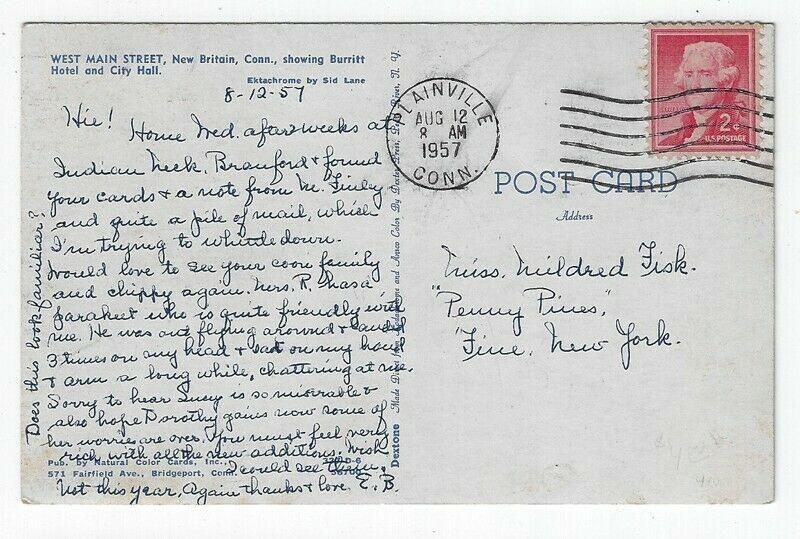 WEST MAIN STREET, New Britain, Conn., showing Burritt
Hotel and City Hall.
Ektachrome by Sid Lane
8-12-57
Hie!
Home Wed. after 2 weeks at
Indian Neck, Branford & found
your cards & a note from M. Finley
and quite a pile of mail, which
I'm trying to whittle down.
Would love to see your coon family
and chippy again. Mrs. R. has a
parakeet who is quite friendly with
me. He was out flying around & landed
3 times on my head & sat on my hand
& arm a long while, chattering at me.
Sorry to hear Lucy is so miserable &
also hope Dorothy gains now some of
her worries are over. You must feel very
rich with all the new additions. Wish
I could see them.
Not this year, Again thanks & love. E. B.
Does this look familiar?
Pub. by Natural Color Cards, Inc.,
571 Fairfield Ave., Bridgeport, Conn.
Dextone
Made Direct from Kodachrome and Ansco Color By Dexter Press, Pearl River, N. Y.
PLAINVILLE
AUG 12
8 AM
1957
CONN.
2¢
U.S. POSTAGE
POST CARD
Address
Miss. Mildred Fisk.
"Penny Pines,"
"Fine, New York.